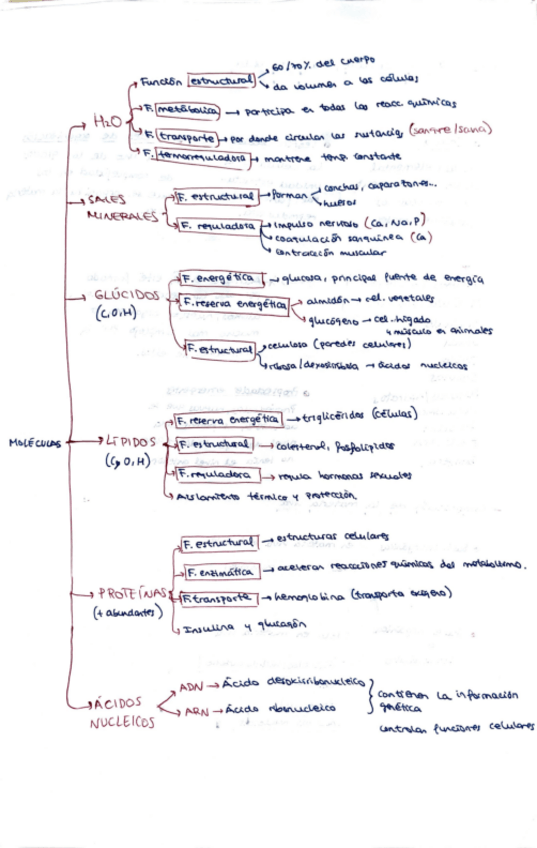 60/70% del cuerpo
Función estructural
da volumen a las células
F. metabólica → participa en todas las reacc. químicas
H₂O
F. transporte → por donde circulan las sustancias (sangre/savia)
F. termorreguladora → mantiene temp constante
SALES MINERALES
F. estructural → forman
conchas, caparazones...
huesos
F. reguladora → impulso nervioso (Ca, Na, P)
coagulación sanguínea (Ca)
contracción muscular
GLÚCIDOS
(C, O, H)
F. energética → glucosa, principal fuente de energía
F. reserva energética
almidón → cel. vegetales
glucógeno → cel. hígado
y músculo en animales
F. estructural
celulosa (paredes celulares)
ribosa/desoxirribosa → ácidos nucleicos
MOLÉCULAS
LÍPIDOS
(C, O, H)
F. reserva energética → triglicéridos (células)
F. estructural → colesterol, fosfolípidos
F. reguladora → regula hormonas sexuales
Aislamiento térmico y protección
PROTEÍNAS
(+ abundantes)
F. estructural → estructuras celulares
F. enzimática → aceleran reacciones químicas del metabolismo.
F. transporte → hemoglobina (transporta oxígeno)
Insulina y glucagón
ÁCIDOS NUCLEICOS
ADN → Ácido desoxirribonucleico
ARN → Ácido ribonucleico
contienen la información
genética
controlan funciones celulares